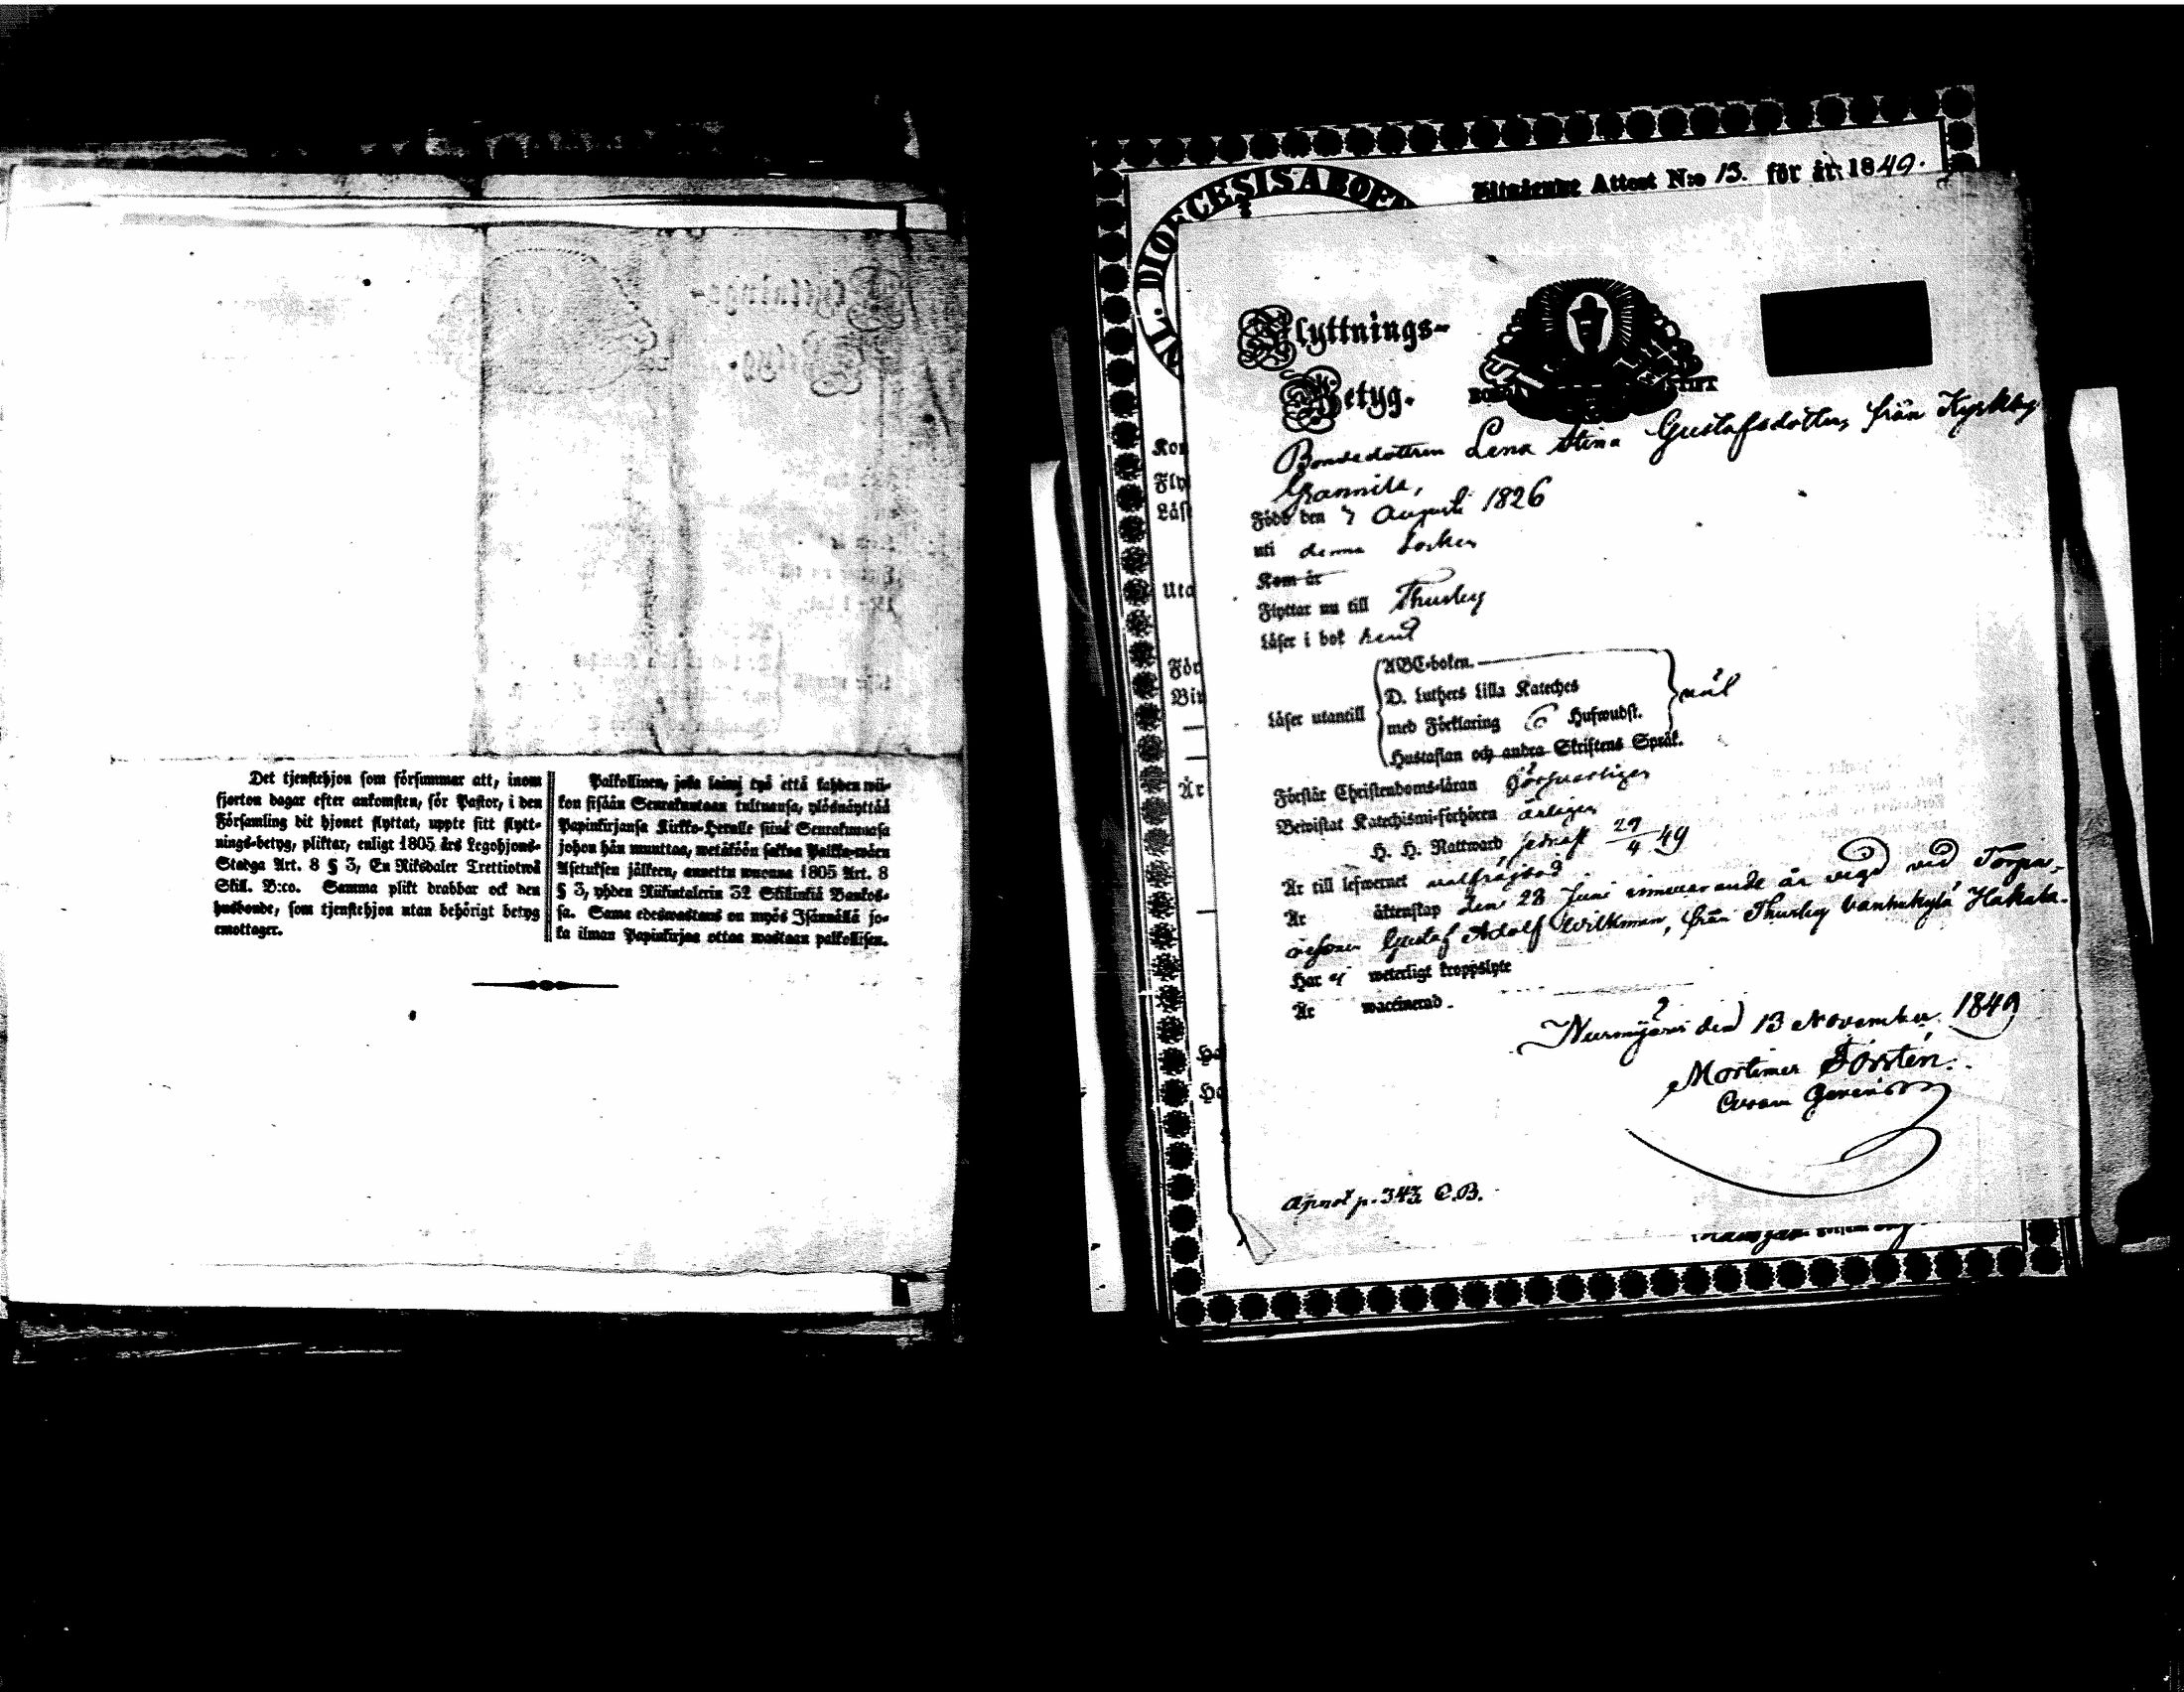 Det tjenstehjon som försummar att, inom
fjorton dagar efter ankomsten, för Pastor, i den
Församling dit hjonet flyttat, uppte sitt flytt-
nings-betyg, pliktar, enligt 1805 års Legohjons-
Stadga Art. 8 § 3, En Riksdaler Trettiotwå
Skill. B:co. Samma plikt drabbar ock den
husbonde, som tjenstehjon utan behörigt betyg
emottager.
Palkollinen, joka laimi lyö että kahden wii-
kon sisään Seurakuntaan tultuansa, ylösnäyttää
Papinkirjansa Kirkko-Herralle siinä Seurakunnasa
johon hän muuttaa, wetäköön sakkoa Palkka-wäen
Asetuksen jälkeen, annettu wuonna 1805 Art. 8
§ 3, yhden Riikintalerin 32 Skillinkiä Bankos-
sa. Sama edeswastaus on myös Isännällä jo-
ka ilman Papinkirjaa ottaa wastaan palkollisen.
Attest N:o 13. för år 1849.
DIOECESIS ABOEN
Flyttnings-
Betyg.
Bondedottren Lena Stina Gustafsdotter, från Kyrkby
Född den 7 Augusti 1826
uti denna Socken
Kom år
Flyttar nu till Thusby
Läser i bok
ABC-boken.
D. Luthers Lilla Kateches
Läser utantill
med Förklaring 6 Hufwudst.
Hustaflan och andra Skriftens Språk.
Förstår Christendoms-läran försvarligen
Bewistat Katechismi-förhören årligen
H. H. Nattward senast 29/4 49
Är till lefwernet välfräjdad
Är äktenskap den 28 Juni innevarande år vigd vid Torpa-
resonen Gustaf Adolf Wilkman, från Thusby
Har ej weterligt kroppslyte
Är waccinerad.
Nurmijärvi den 13 November 1849
Mortimer Forstén.
Apnot p. 343 C.B.